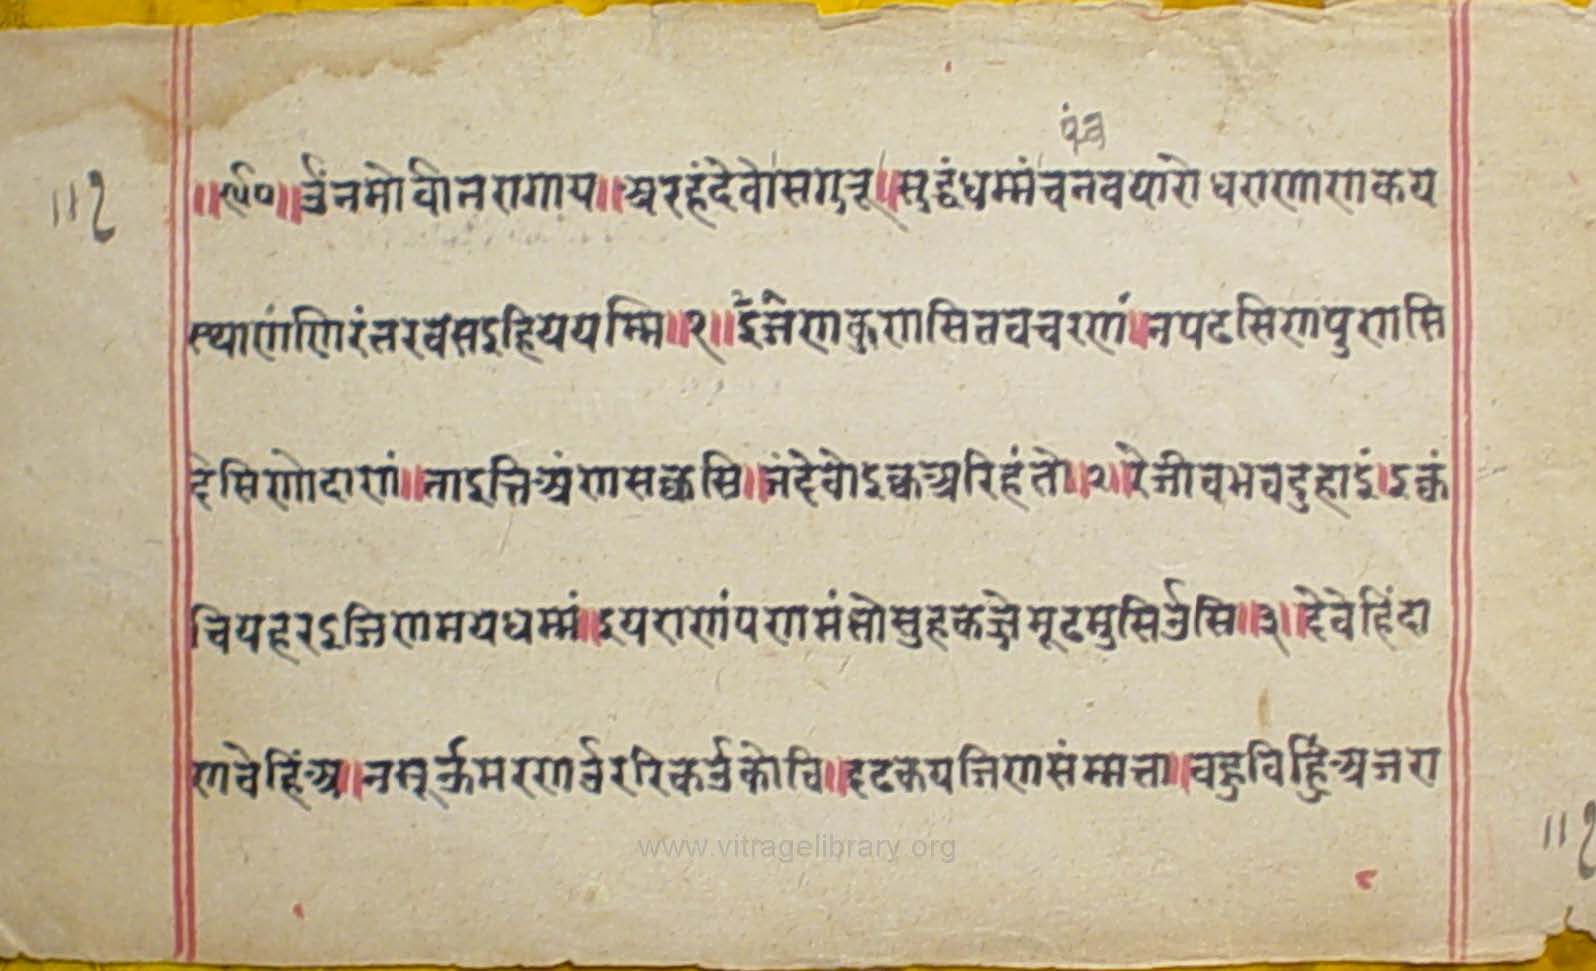 पंच
॥९ॐ०॥ उँनमोवीतरागाय॥अरहंदेवोसगुरू॥सुद्धंधम्मंचनवयारोधराणाणकय
त्थाणंणिरंतरंवसइहिययम्मि॥१॥जइणकुणसितवचरणं॥नपढसिणपुणसि
देसिणोदाणं॥ताइत्तिअंणसक्कसि॥जंदेवोइक्कअरिहंतो॥२॥रेजीवभवदुहाइं॥इक्कं
चियहरइजिणमयधम्मं॥इयराणंपणमंतोसुहकज्जेमूढमुसिउसि॥३॥देवेहिंदा
णवेहिंअ॥नसूउमरणाउररिकउकोवि॥दृढकयजिणसंम्मत्ता॥बहुविहुंअजरा
११२
www.vitragelibrary.org